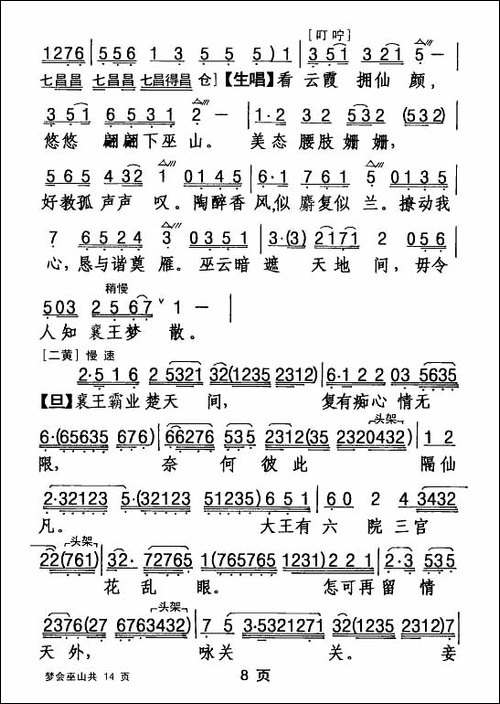 [叮咛]
1276 | 556 1 3 5 5 5 ) 1 | 351 321 5 –
七昌昌 七昌昌 七昌得昌 仓】【生唱】看 云霞 拥仙 颜,
351 6531 2 – | 1·2 32 532 (532)
悠悠 翩翩下巫 山。 美态 腰肢 姗 姗,
565 432 1 0145 | 6·1 761 5 0135
好教孤 声声 叹。陶醉香 风,似 麝复似 兰。撩动我
7 6524 3 0351 | 3·(3) 2171 2 056
心,恳与谐奠 雁。巫云暗 遮 天地 间,毋令
稍慢
503 2567 ᵛ1 –
人知 襄王梦 散。
[二黄] 慢 速
2·516 2 5321 32(1235 2312) | 6·122 03 5635
【旦】襄王霸业 楚天 间, 复有痴心 情无
头架
6·(65635 676) | 66276 535 2312(35 2320432) | 1 2
限, 奈 何 彼 此 隔仙
2·32123 5·(32123 51235) 651 | 6 0 2 4 3432
凡。 大王有 六 院 三宫
头架
22(761) | 32· 72765 1(765765 1231) 2 2 1 | 2·3 535
花 乱 眼。 怎可再 留 情
头架
2376(276 6763432) | 7 5 3·5321271 32(1235 2312)7 |
天外, 咏关 关。 妾
梦会巫山共 14 页
8 页